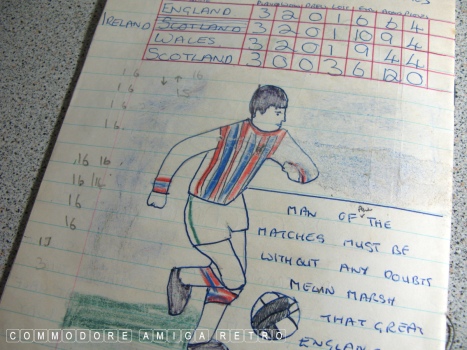 ENGLAND 3 2 0 1 6 6 4
IRELAND SCOTLAND 3 2 0 1 10 9 4
WALES 3 2 0 1 9 4 4
SCOTLAND 3 0 0 3 6 12 0
16 16
16 15
16
16
16 16
16 16
16
16
15
3
MAN OF ALL THE
MATCHES MUST BE
WITHOUT ANY DOUBTS
MELAN MARSH
THAT GREAT
ENGLAN
COMMODORE AMIGA RETRO